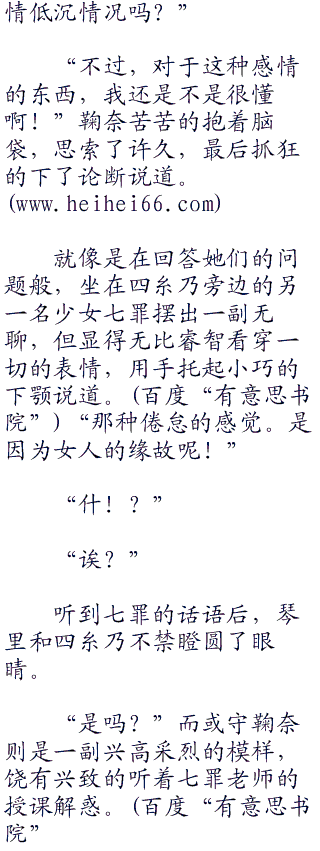 情低沉情况吗？”
“不过，对于这种感情
的东西，我还是不是很懂
啊！”鞠奈苦苦的抱着脑
袋，思索了许久，最后抓狂
的下了论断说道。
(www.heihei66.com)
就像是在回答她们的问
题般，坐在四糸乃旁边的另
一名少女七罪摆出一副无
聊，但显得无比睿智看穿一
切的表情，用手托起小巧的
下颚说道。(百度“有意思书
院”)“那种倦怠的感觉。是
因为女人的缘故呢！”
“什！？”
“诶？”
听到七罪的话语后，琴
里和四糸乃不禁瞪圆了眼
睛。
“是吗？”而或守鞠奈
则是一副兴高采烈的模样，
饶有兴致的听着七罪老师的
授课解惑。(百度“有意思书
院”